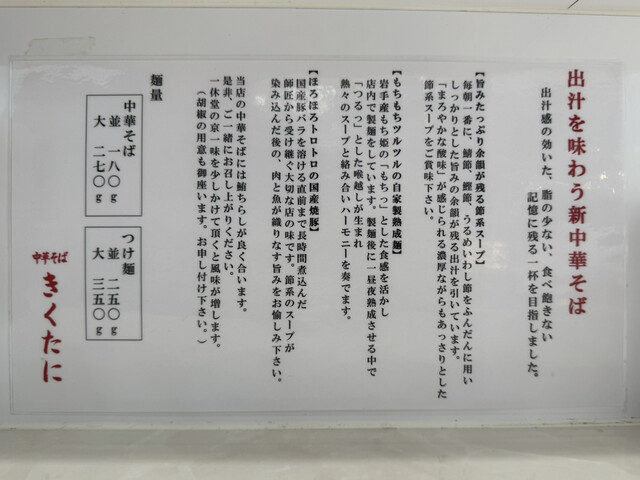 出汁を味わう新中華そば
出汁感の効いた、脂の少ない、食べ飽きない
記憶に残る一杯を目指しました。
【旨みたっぷり余韻が残る節系スープ】
毎朝一番に、鯖節、鰹節、うるめいわし節をふんだんに用い
しっかりとした旨みの余韻が残る出汁を引いています。
「まろやかな酸味」が感じられる濃厚ながらもあっさりとした
節系スープをご賞味下さい。
【もちもちツルツルの自家製熟成麺】
岩手産もち姫の「もちっ」とした食感を活かし
店内で製麺をしています。製麺後に一昼夜熟成させる中で
「つるっ」とした喉越しが生まれ
熱々のスープと絡み合いハーモニーを奏でます。
【ほろほろトロトロの国産焼豚】
国産豚バラを溶ける直前まで長時間煮込んだ
師匠から受け継ぐ大切な店の味です。節系のスープが
染み込んだ後の、肉と魚が織りなす旨みをお愉しみ下さい。
当店の中華そばには鮪ちらしが良く合います。
是非、ご一緒にお召し上がりください。
一休堂の京一味を少しかけて頂くと風味が増します。
（胡椒の用意も御座います。お申し付け下さい。）
麺量
中華そば
並 一八〇g
大 二七〇g
つけ麺
並 二五〇g
大 三五〇g
中華そば
きくたに